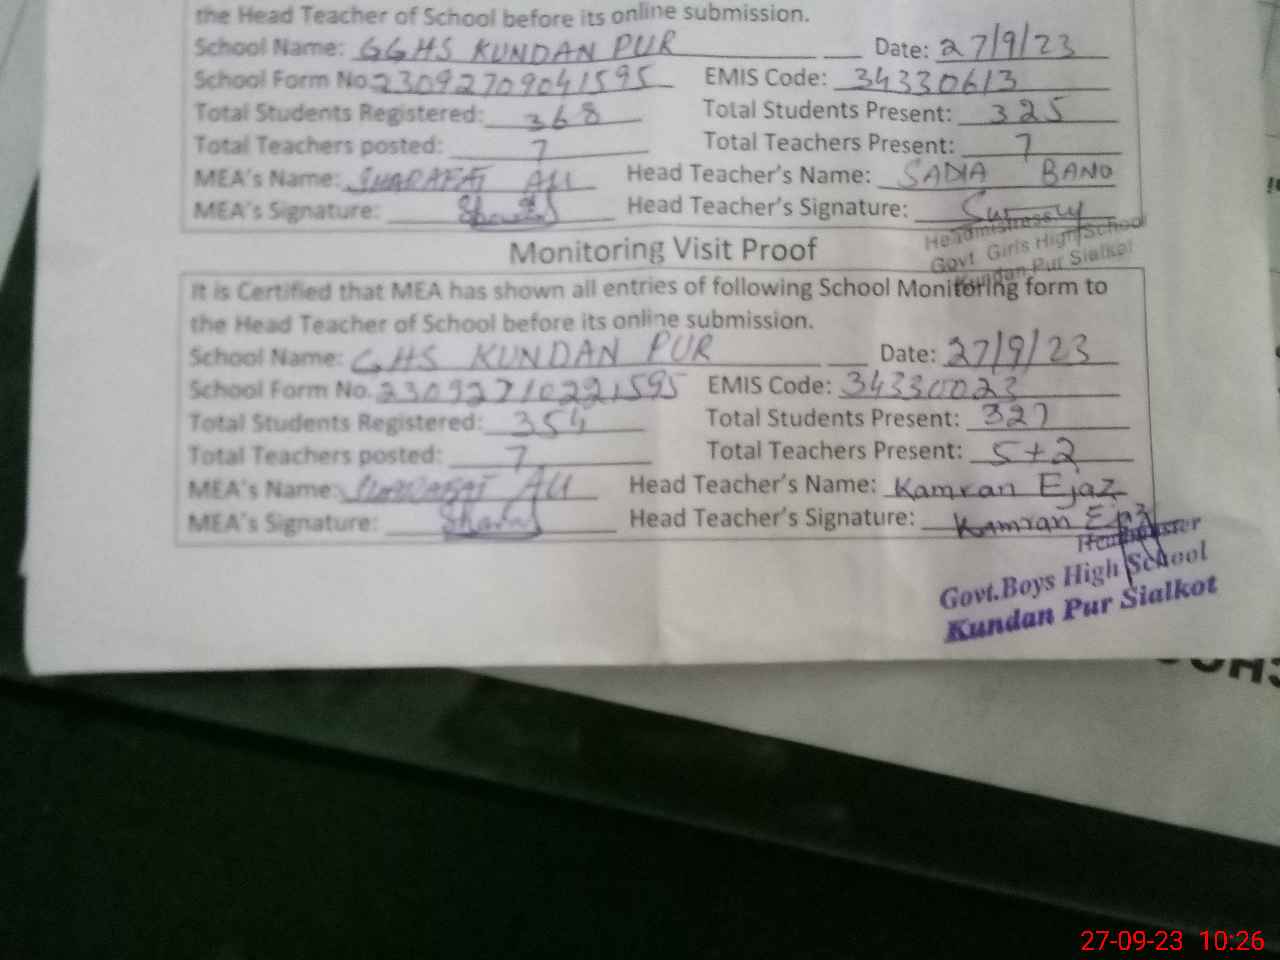 the Head Teacher of School before its online submission.
School Name: GGHS KUNDAN PUR Date: 27/9/23
School Form No. 23092709041595 EMIS Code: 34330613
Total Students Registered: 368 Total Students Present: 325
Total Teachers posted: 7 Total Teachers Present: 7
MEA's Name: SHARAFAT ALI Head Teacher's Name: SADIA BANO
MEA's Signature: Head Teacher's Signature:
Headmistress
Govt. Girls High School
Kundan Pur Sialkot
Monitoring Visit Proof
It is Certified that MEA has shown all entries of following School Monitoring form to
the Head Teacher of School before its online submission.
School Name: GHS KUNDAN PUR Date: 27/9/23
School Form No. 23092710221595 EMIS Code: 34330023
Total Students Registered: 354 Total Students Present: 327
Total Teachers posted: 7 Total Teachers Present: 5+2
MEA's Name: SHARAFAT ALI Head Teacher's Name: Kamran Ejaz
MEA's Signature: Head Teacher's Signature: Kamran Ejaz
Headmaster
Govt.Boys High School
Kundan Pur Sialkot
27-09-23 10:26